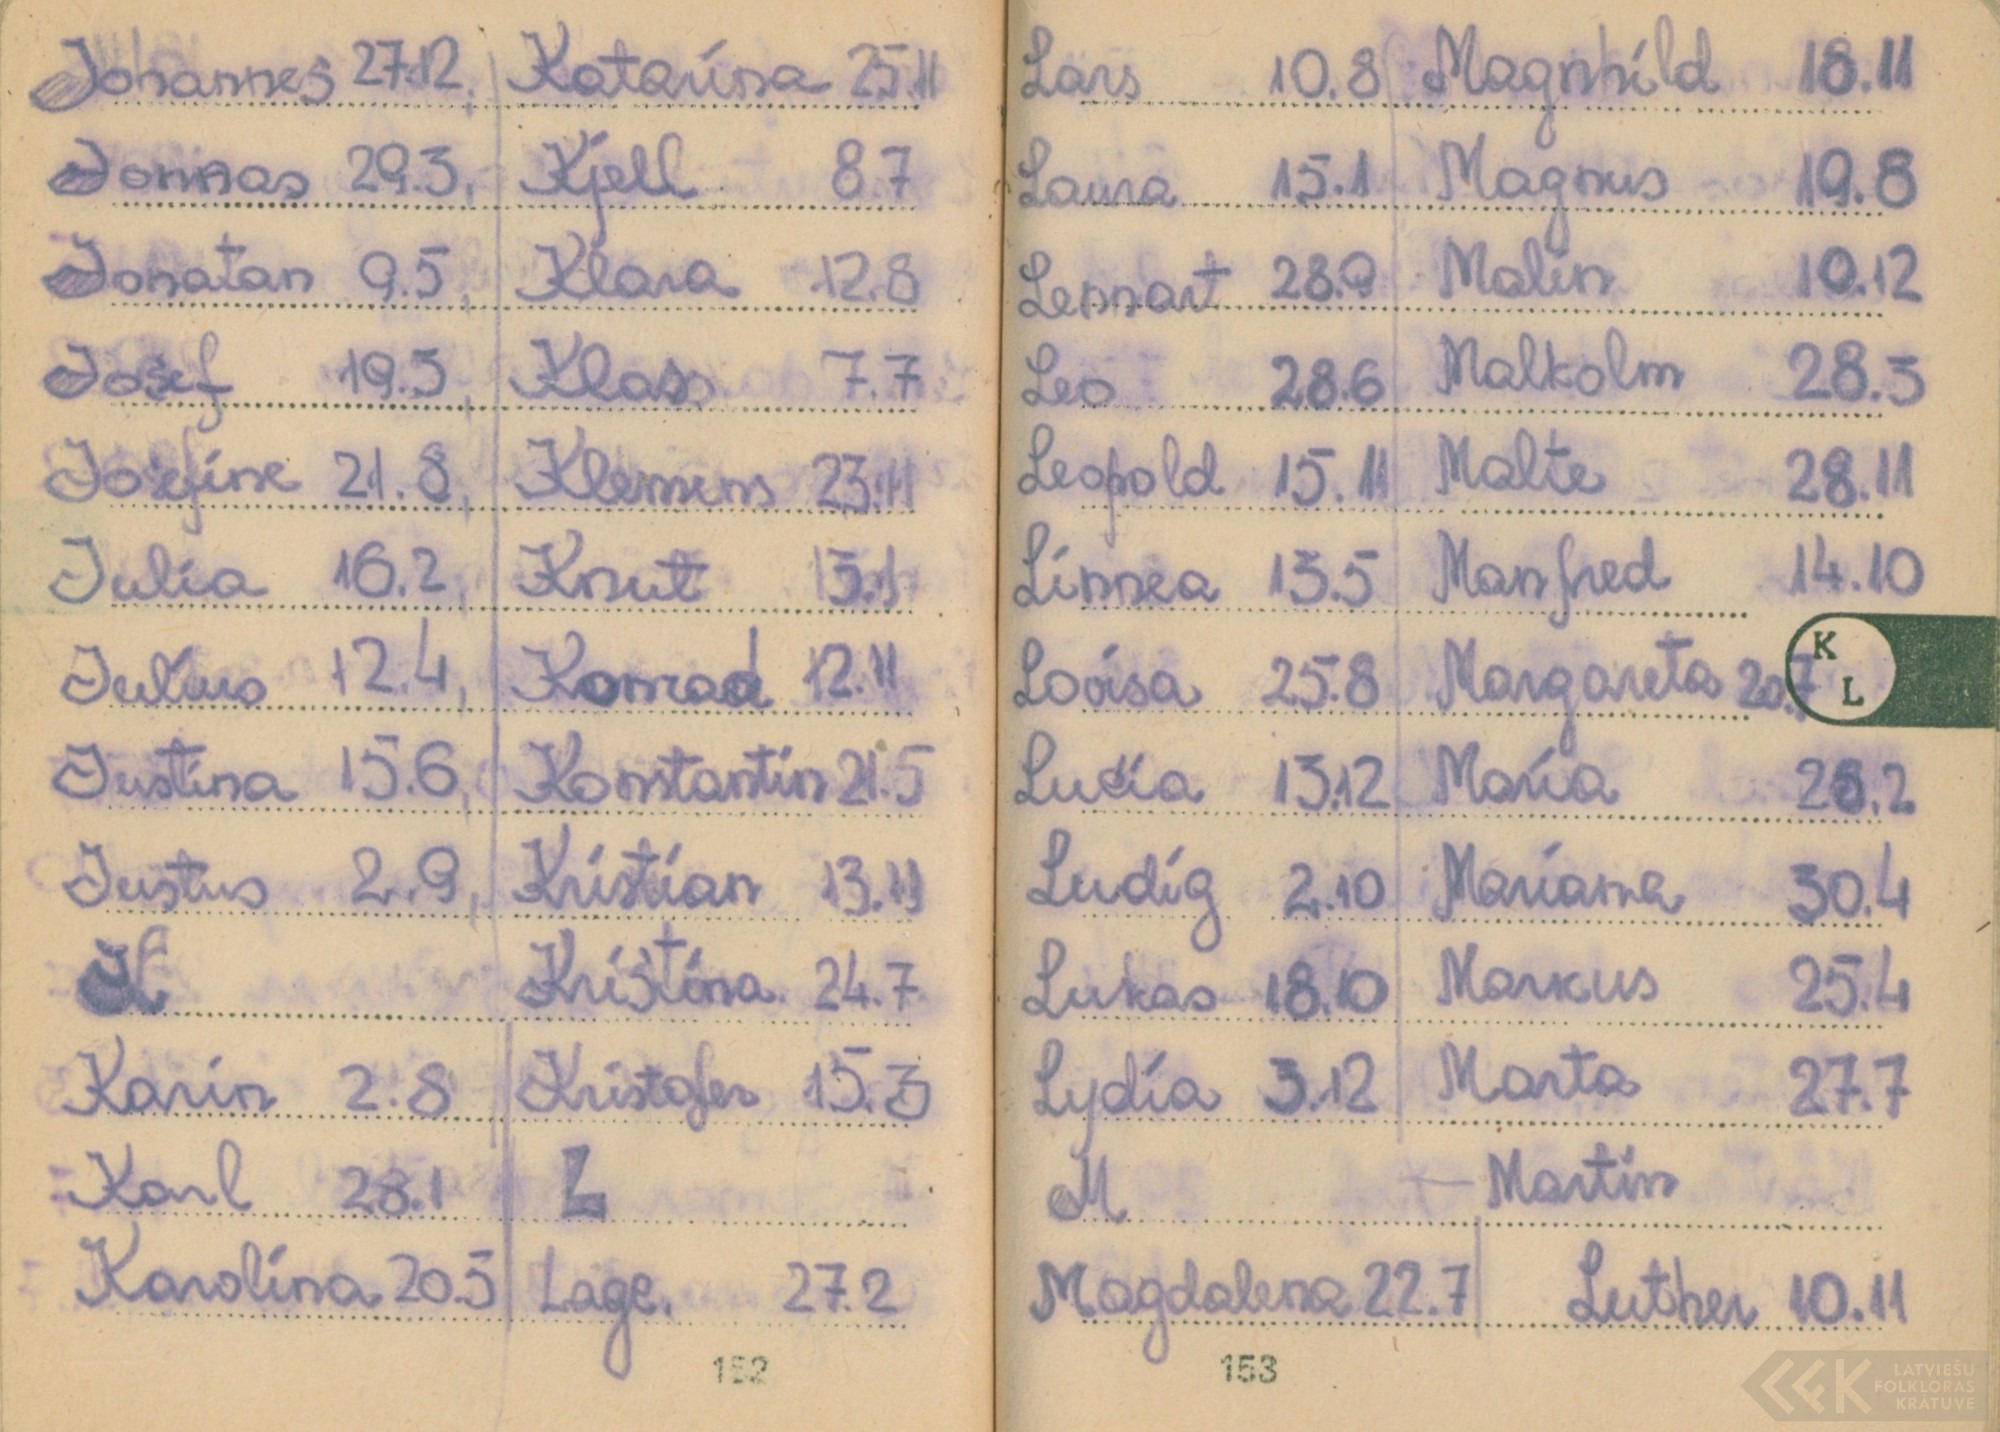 Johannes 27.12.
Jonnas 29.3.
Jonatan 9.5.
Josef 19.3.
Josefine 21.8.
Julia 16.2.
Julius 12.4.
Justina 15.6.
Justus 2.9.
K
Karin 2.8
Karl 28.1
Karolina 20.5
Katarina 25.11
Kjell 8.7
Klara 12.8
Klas 7.7
Klemens 23.11
Knut 13.1
Konrad 12.11
Konstantin 21.5
Kristian 13.11
Kristina 24.7
Kristofer 15.3
L
Lage. 27.2
152
Lars 10.8
Laura 15.1
Lennart 28.9
Leo 28.6
Leopold 15.11
Linnea 13.5
Lovisa 25.8
Lucia 13.12
Ludig 2.10
Lukas 18.10
Lydia 3.12
M
Magdalena 22.7
Magnhild 18.11
Magnus 19.8
Malin 10.12
Malkolm 28.3
Malte 28.11
Manfred 14.10
Margareta 20.7
Maria 28.2
Mariana 30.4
Markus 25.4
Marta 27.7
Martin
Luther 10.11
153
K
L
LATVIEŠU
FOLKLORAS
KRĀTUVE